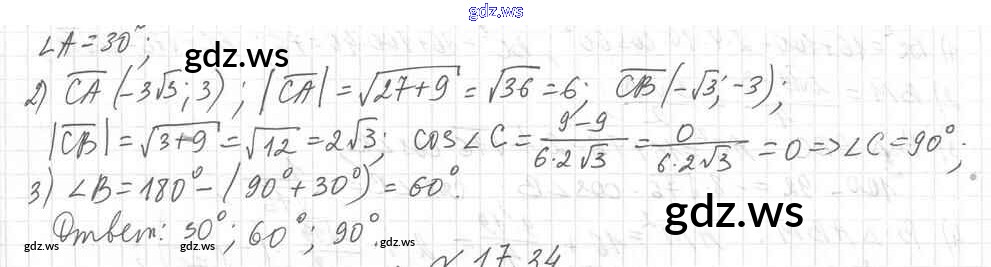 gdz.ws
∠A = 30°;
gdz.ws
2) CA (-3√3; 3); |CA| = √27+9 = √36 = 6; CB (-√3; -3);
|CB| = √3+9 = √12 = 2√3; cos∠C = 9-9/6·2√3 = 0/6·2√3 = 0 => ∠C = 90°;
3) ∠B = 180° - (90° + 30°) = 60°.
gdz.ws
Ответ: 30°; 60°; 90°.
gdz.ws gdz.ws gdz.ws gdz.ws
№ 17.34